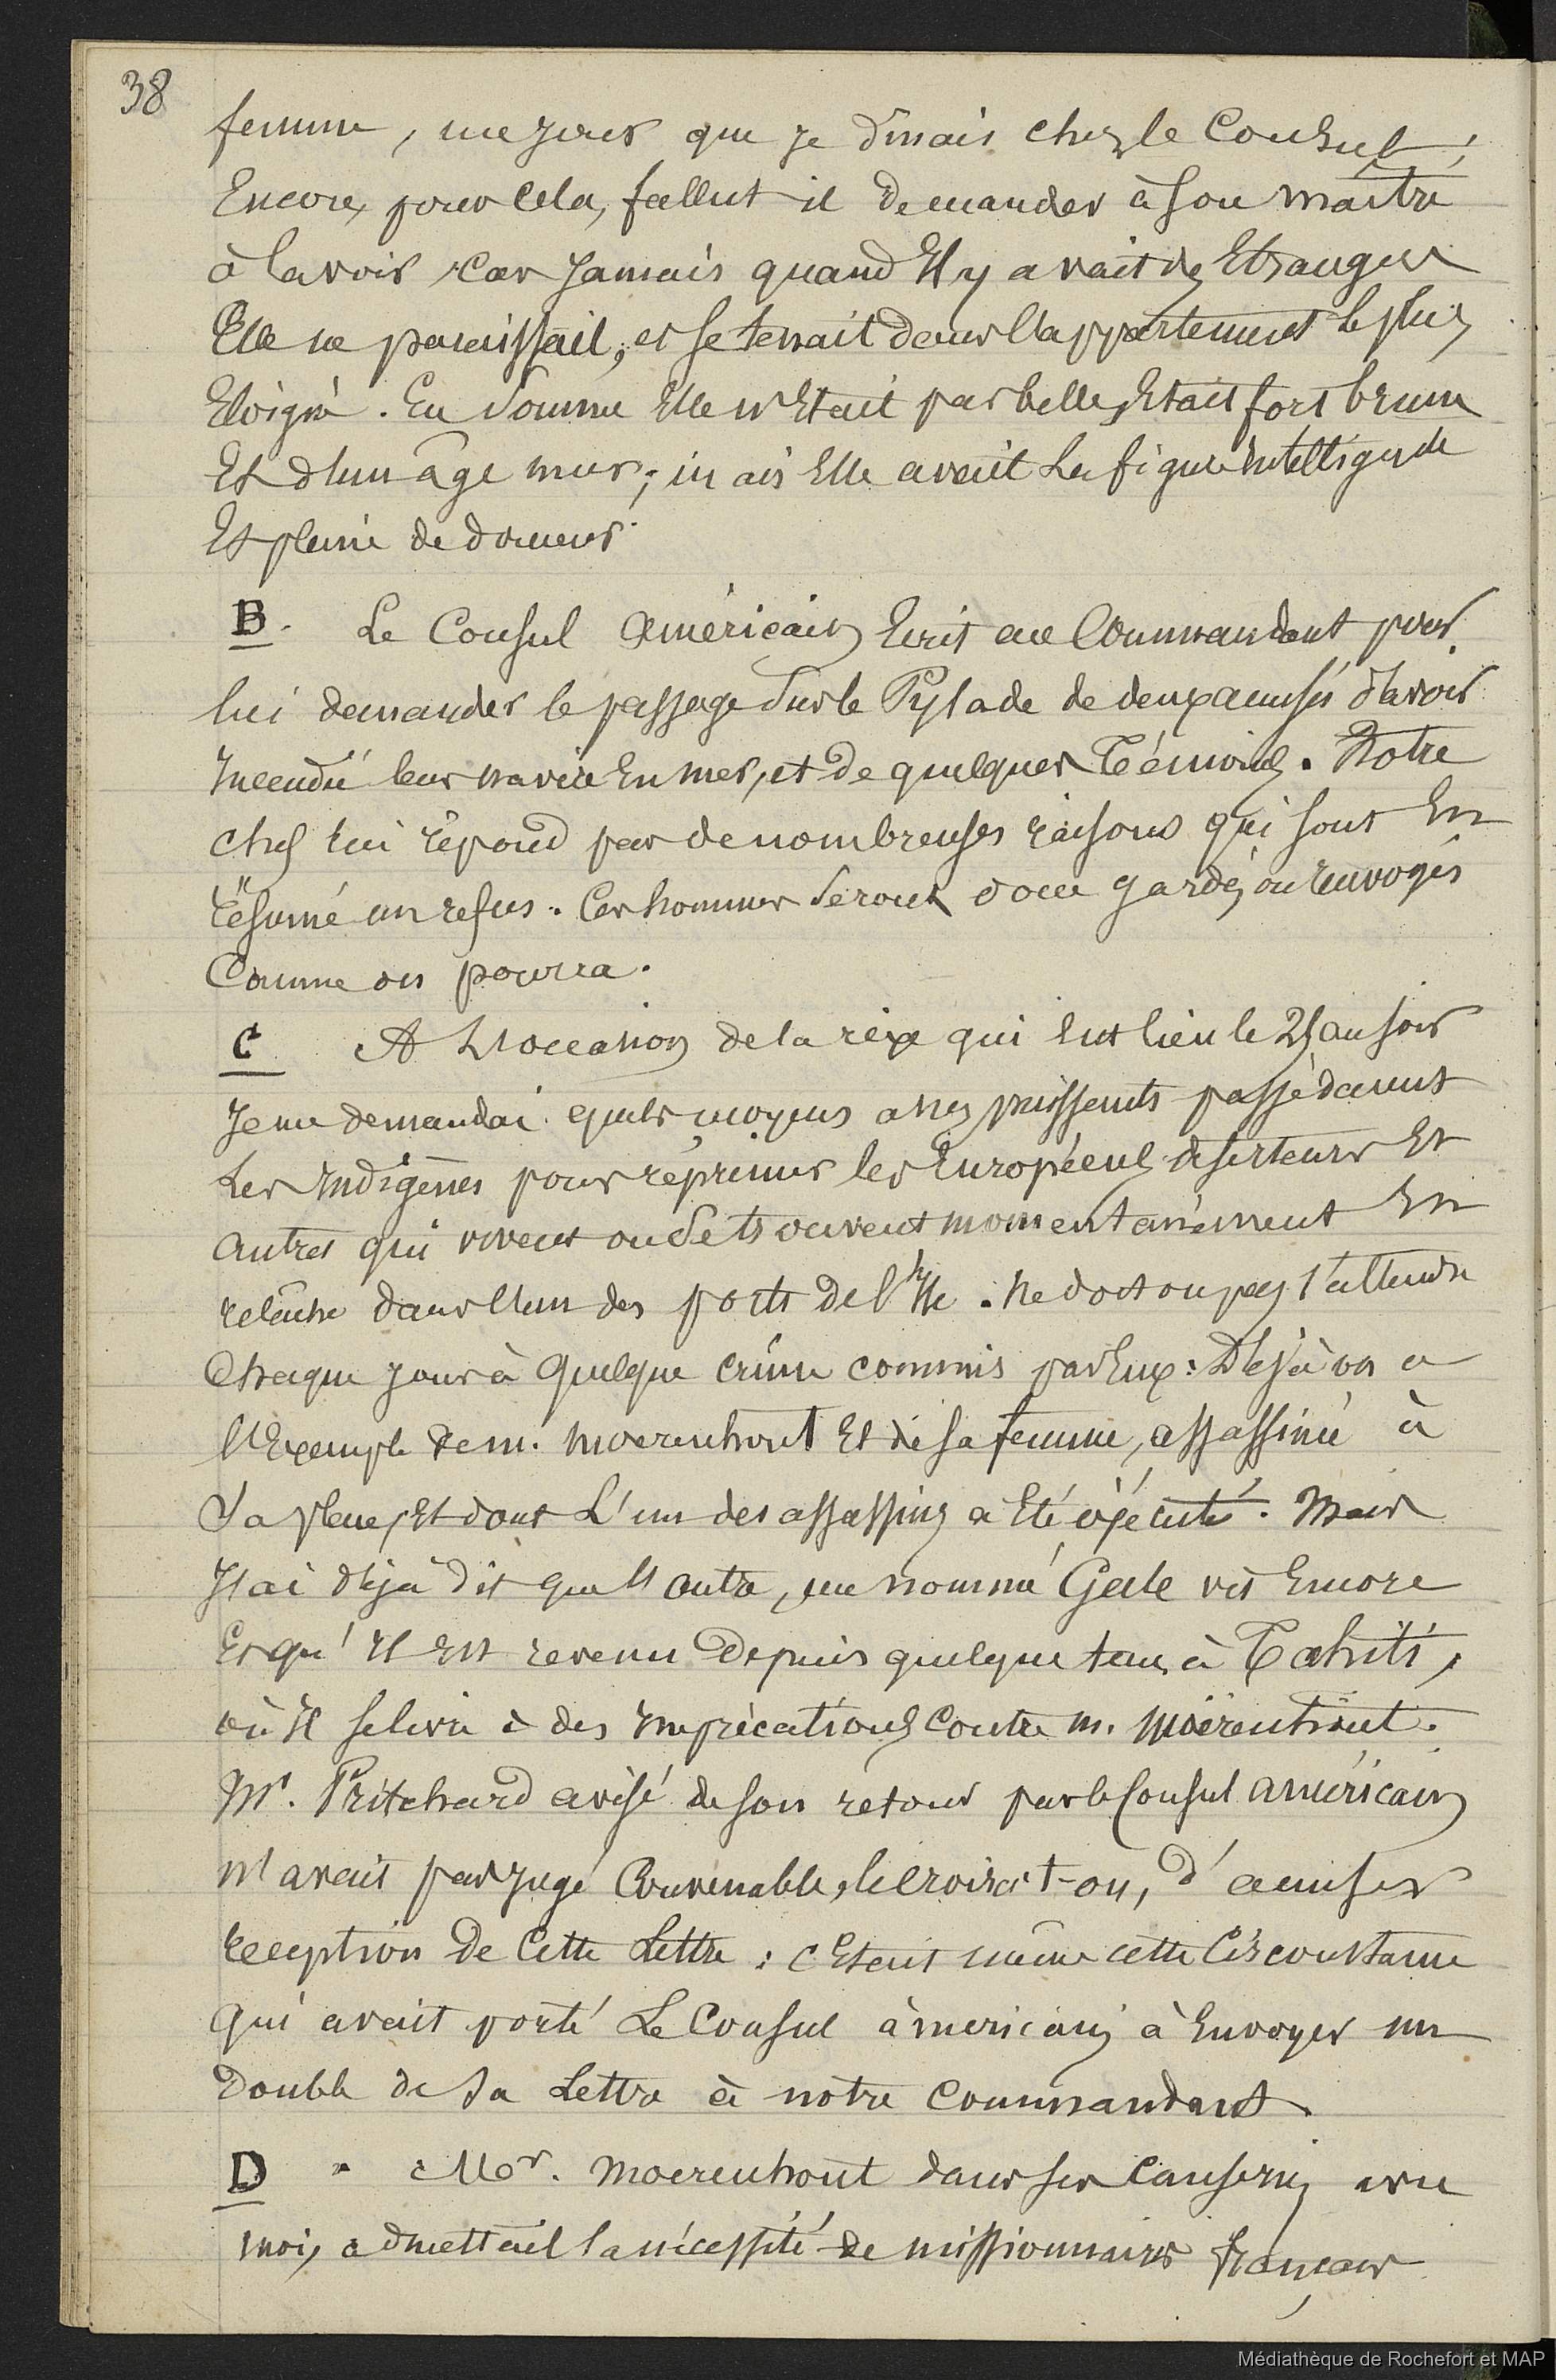 38
femme, un jour que je dinais chez le Consul;
Encore, pour cela, fallut il demander à son maitre
à la voir, car Jamais quand Il y avait des Etrangers
Elle ne paraissait, et se tenait dans l'appartement le plus
Eloigné. En somme Elle n'Etait pas belle, Etait fort brune
Et d'un âge mur; mais Elle avait La figure intelligente
Et pleine de douceur.
B. Le Consul Américain Ecrit au Commandant pour
lui demander le passage sur le Pylade de deux accusés d'avoir
Incendié leur navire En mer, et de quelques Témoins. Notre
chef lui répond par de nombreuses raisons qui sont En
résumé un refus. Ces hommes seront donc gardés ou renvoyés
Comme on pourra.
C A L'occasion de la rixe qui Eut lieu le 25 au soir
Je me demandai quels moyens assez puissants possèdaient
Les Indigènes pour réprimer les Européens déserteurs Et
autres qui vivent ou se trouvent momentanément En
relâche dans l'un des ports de l'Ile. Ne doit on pas s'attendre
Chaque jour à quelque crime commis par Eux: Déjà on a
l'Exemple de m. Moerenhout Et de sa femme, assassinée à
Sa place, Et dont L'un des assassins a Eté éxécuté. Mais
J'ai déjà dit que l'autre, un nommé Geele vit Encore
Et qu'Il Est revenu Depuis quelque tems à Tahiti,
où Il se livre à des Imprécations contre m. Moërenhout.
Mr. Pritchard avisé de son retour par le Consul américain
n'avait pas jugé Convenable, le croirait-on, d'accuser
reception de Cette Lettre: c'Etait même cette Circonstance
qui avait porté Le Consul américain à Envoyer un
Double de sa Lettre à notre Commandant.
D. Mor. Moerenhout dans ses causeries avec
moi, admettait la nécessité de missionnaires français
Médiathèque de Rochefort et MAP